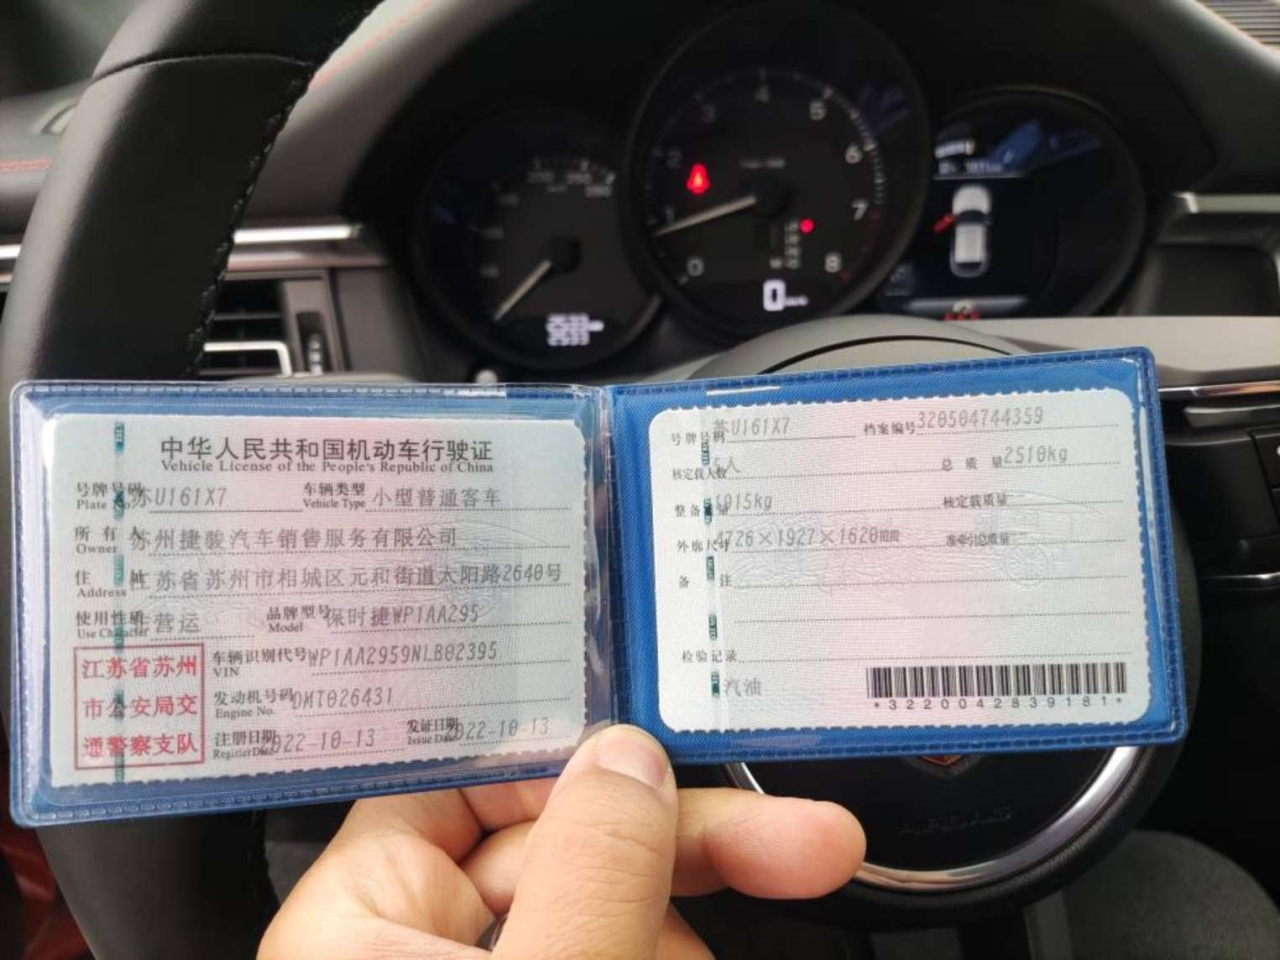 中华人民共和国机动车行驶证
Vehicle License of the People's Republic of China
号牌号码 苏U161X7 车辆类型 小型普通客车
Plate No. Vehicle Type
所有人 苏州捷骏汽车销售服务有限公司
Owner
住址 江苏省苏州市相城区元和街道太阳路2640号
Address
使用性质 营运 品牌型号 保时捷WP1AA295
Use Character Model
江苏省苏州
市公安局交
通警察支队
车辆识别代号 WP1AA2959NLB02395
VIN
发动机号码 DMT026431
Engine No.
注册日期 022-10-13 发证日期 022-10-13
Register Date Issue Date
号牌号码 苏U161X7 档案编号 320504744359
核定载人数 5人 总质量 2510kg
整备质量 1915kg 核定载质量
外廓尺寸 4726×1927×1620mm 准牵引总质量
备注
检验记录
汽油
*3220042839181*
1 2 3 4 5 6 7 8
0
0
2533